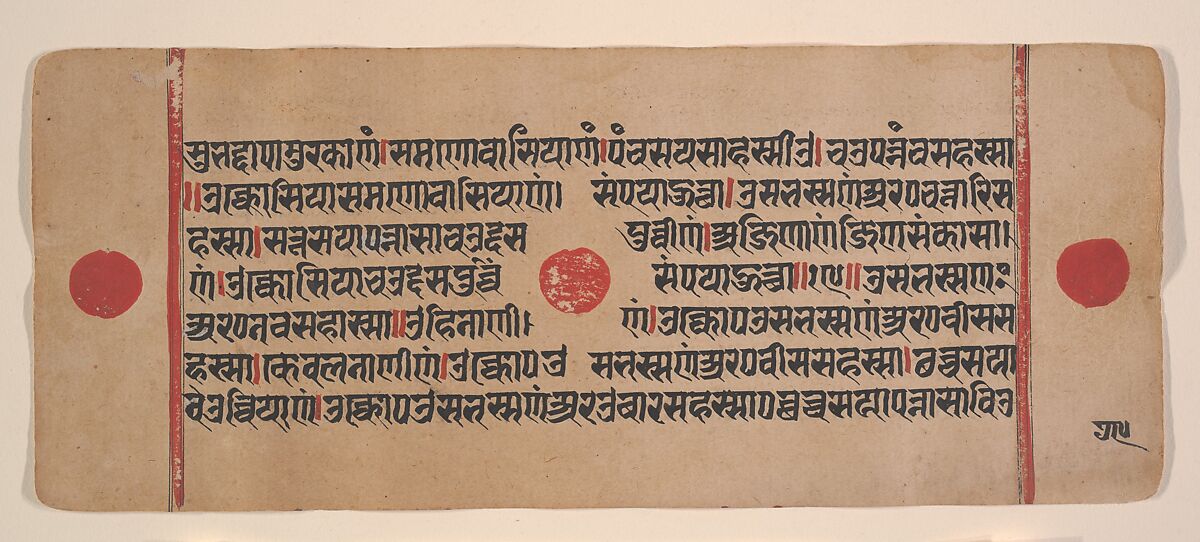 सुभद्दापामुरकाणं।समणोवासियाणं।पंचसयसाहस्सीउ।चउपन्नंचसहस्सा
॥उक्कोसियासमणोवासियाणं। संपयाऊच्छा।उसभस्सणंअर०चत्तारिस
हस्सा।सत्तसयापन्नासाचउद्दस पुव्वीणं।अजिणाणंजिणसंकासा।
णं।उक्कोसियाचउद्दसपुव्वि संपयाऊच्छा॥१९॥उसभस्सणं
अर०नवसहास्सा॥उहिनाणी। णं।उक्कोप०उसभस्सणंअर०वीसस
हस्सा।केवलनाणीणं।उक्कोप०उ सभस्सणंअर०वीससहस्सा।छच्चसया
वेउव्वियाणं।उक्कोप०उसभस्सणंअर०उबारससहस्साछच्चसयापन्नासाविउ